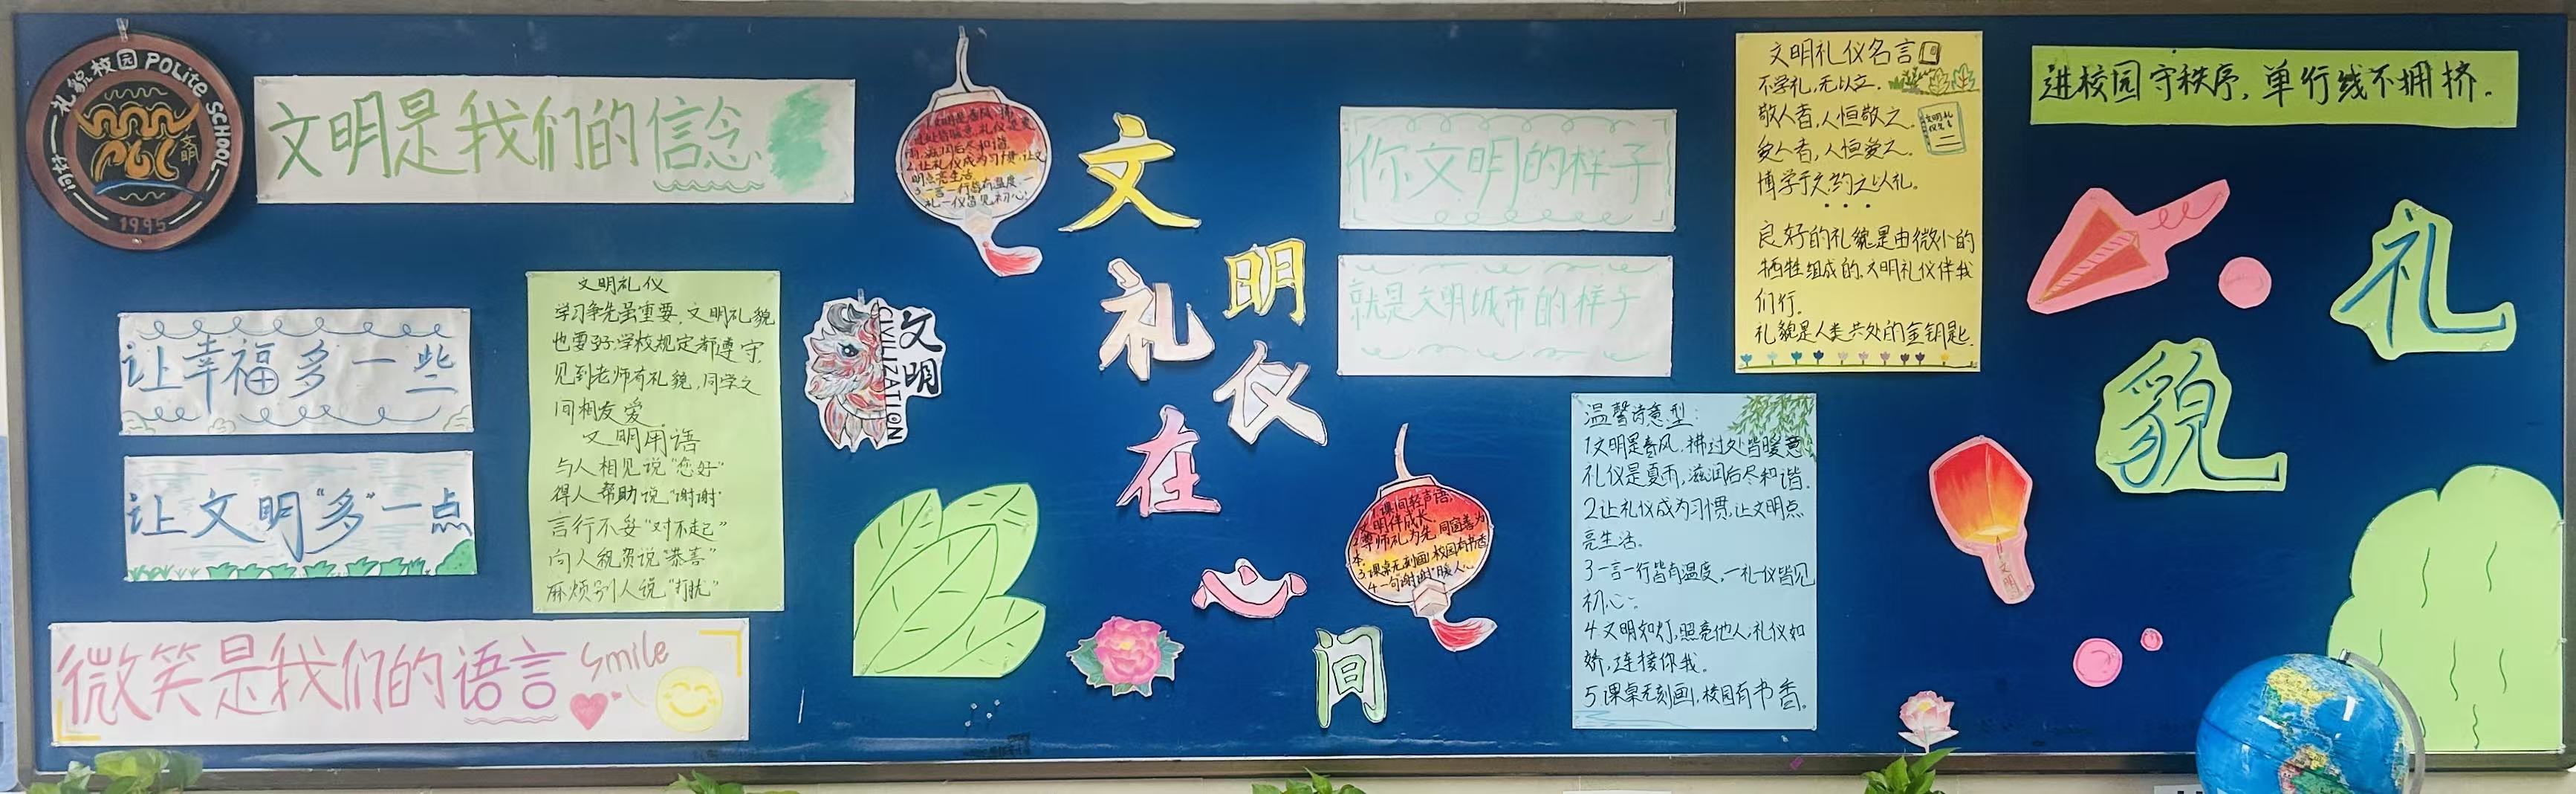 礼貌校园 POLite SCHOOL
文明
1995
文明是我们的信念
让幸福多一些
让文明“多”一点
微笑是我们的语言 Smile
文明礼仪
学习争先虽重要,文明礼貌
也要好.学校规定都遵守,
见到老师有礼貌,同学之
间相友爱.
文明用语
与人相见说“您好”
得人帮助说“谢谢”
言行不妥“对不起”
向人祝贺说“恭喜”
麻烦别人说“打扰”
2.让礼仪成为习惯,让文
明点亮生活.
3.一言一行皆有温度,一
礼一仪皆见初心.
文明
CIVILIZATION
文明
礼仪
在
间
1.课间轻声语,
文明伴成长.
2.尊师礼为先,同窗善为
本.
3.课桌无刻画,校园有书香
4.一句谢谢”暖人心
你文明的样子
就是文明城市的样子
文明礼仪名言
不学礼,无以立.
敬人者,人恒敬之.
爱人者,人恒爱之.
博学于文,约之以礼.
良好的礼貌是由微小的
牺牲组成的.文明礼仪伴我
们行.
礼貌是人类共处的金钥匙.
温馨诗意型:
1文明是春风,拂过处皆暖意
礼仪是夏雨,滋润后尽和谐.
2让礼仪成为习惯,让文明点
亮生活.
3一言一行皆有温度,一礼一仪皆见
初心.
4文明如灯,照亮他人,礼仪如
桥,连接你我.
5课桌无刻画,校园有书香.
进校园守秩序,单行线不拥挤.
礼
貌
文明